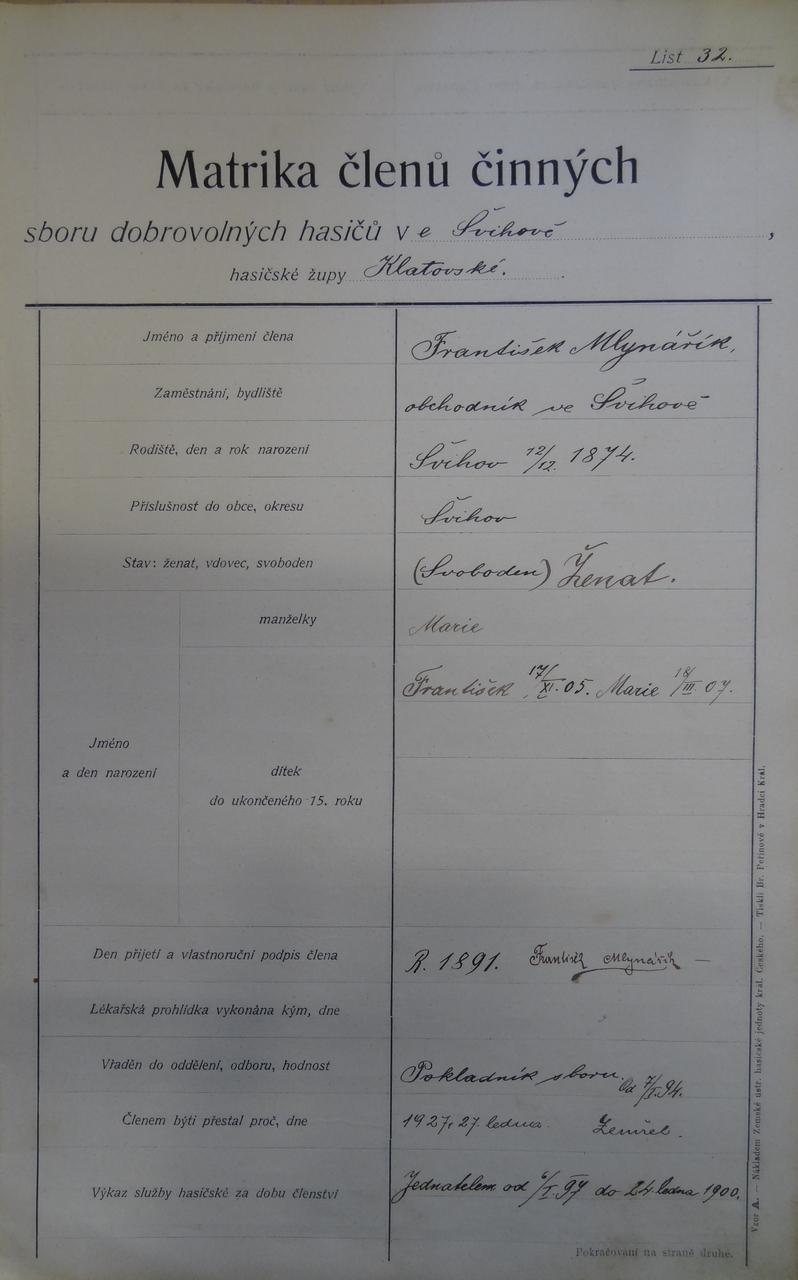 List 32.
Matrika členů činných
sboru dobrovolných hasičů v e Švihově ,
hasičské župy Klatovské.
Jméno a příjmení člena František Mlynářík,
Zaměstnání, bydliště obchodník ve Švihově
Rodiště, den a rok narození Švihov 12/12. 1874.
Příslušnost do obce, okresu Švihov
Stav: ženat, vdovec, svoboden (Svoboden) Ženat.
manželky Marie
František 17/XI. 05. Marie 18/III. 07.
Jméno
a den narození
dítek
do ukončeného 15. roku
Den přijetí a vlastnoruční podpis člena R. 1891. František Mlynářík —
Lékařská prohlídka vykonána kým, dne
Vřaděn do oddělení, odboru, hodnost Pokladník sboru. Od 7/I. 94.
Členem býti přestal proč, dne 1927, 27. ledna. Zemřel.
Výkaz služby hasičské za dobu členství Jednatelem od 6/I. 97 do 24. ledna 1900.
Pokračování na straně druhé.
Vzor A. — Nákladem Zemské ústř. hasičské jednoty král. Českého. — Tiskli Br. Peřinové v Hradci Král.